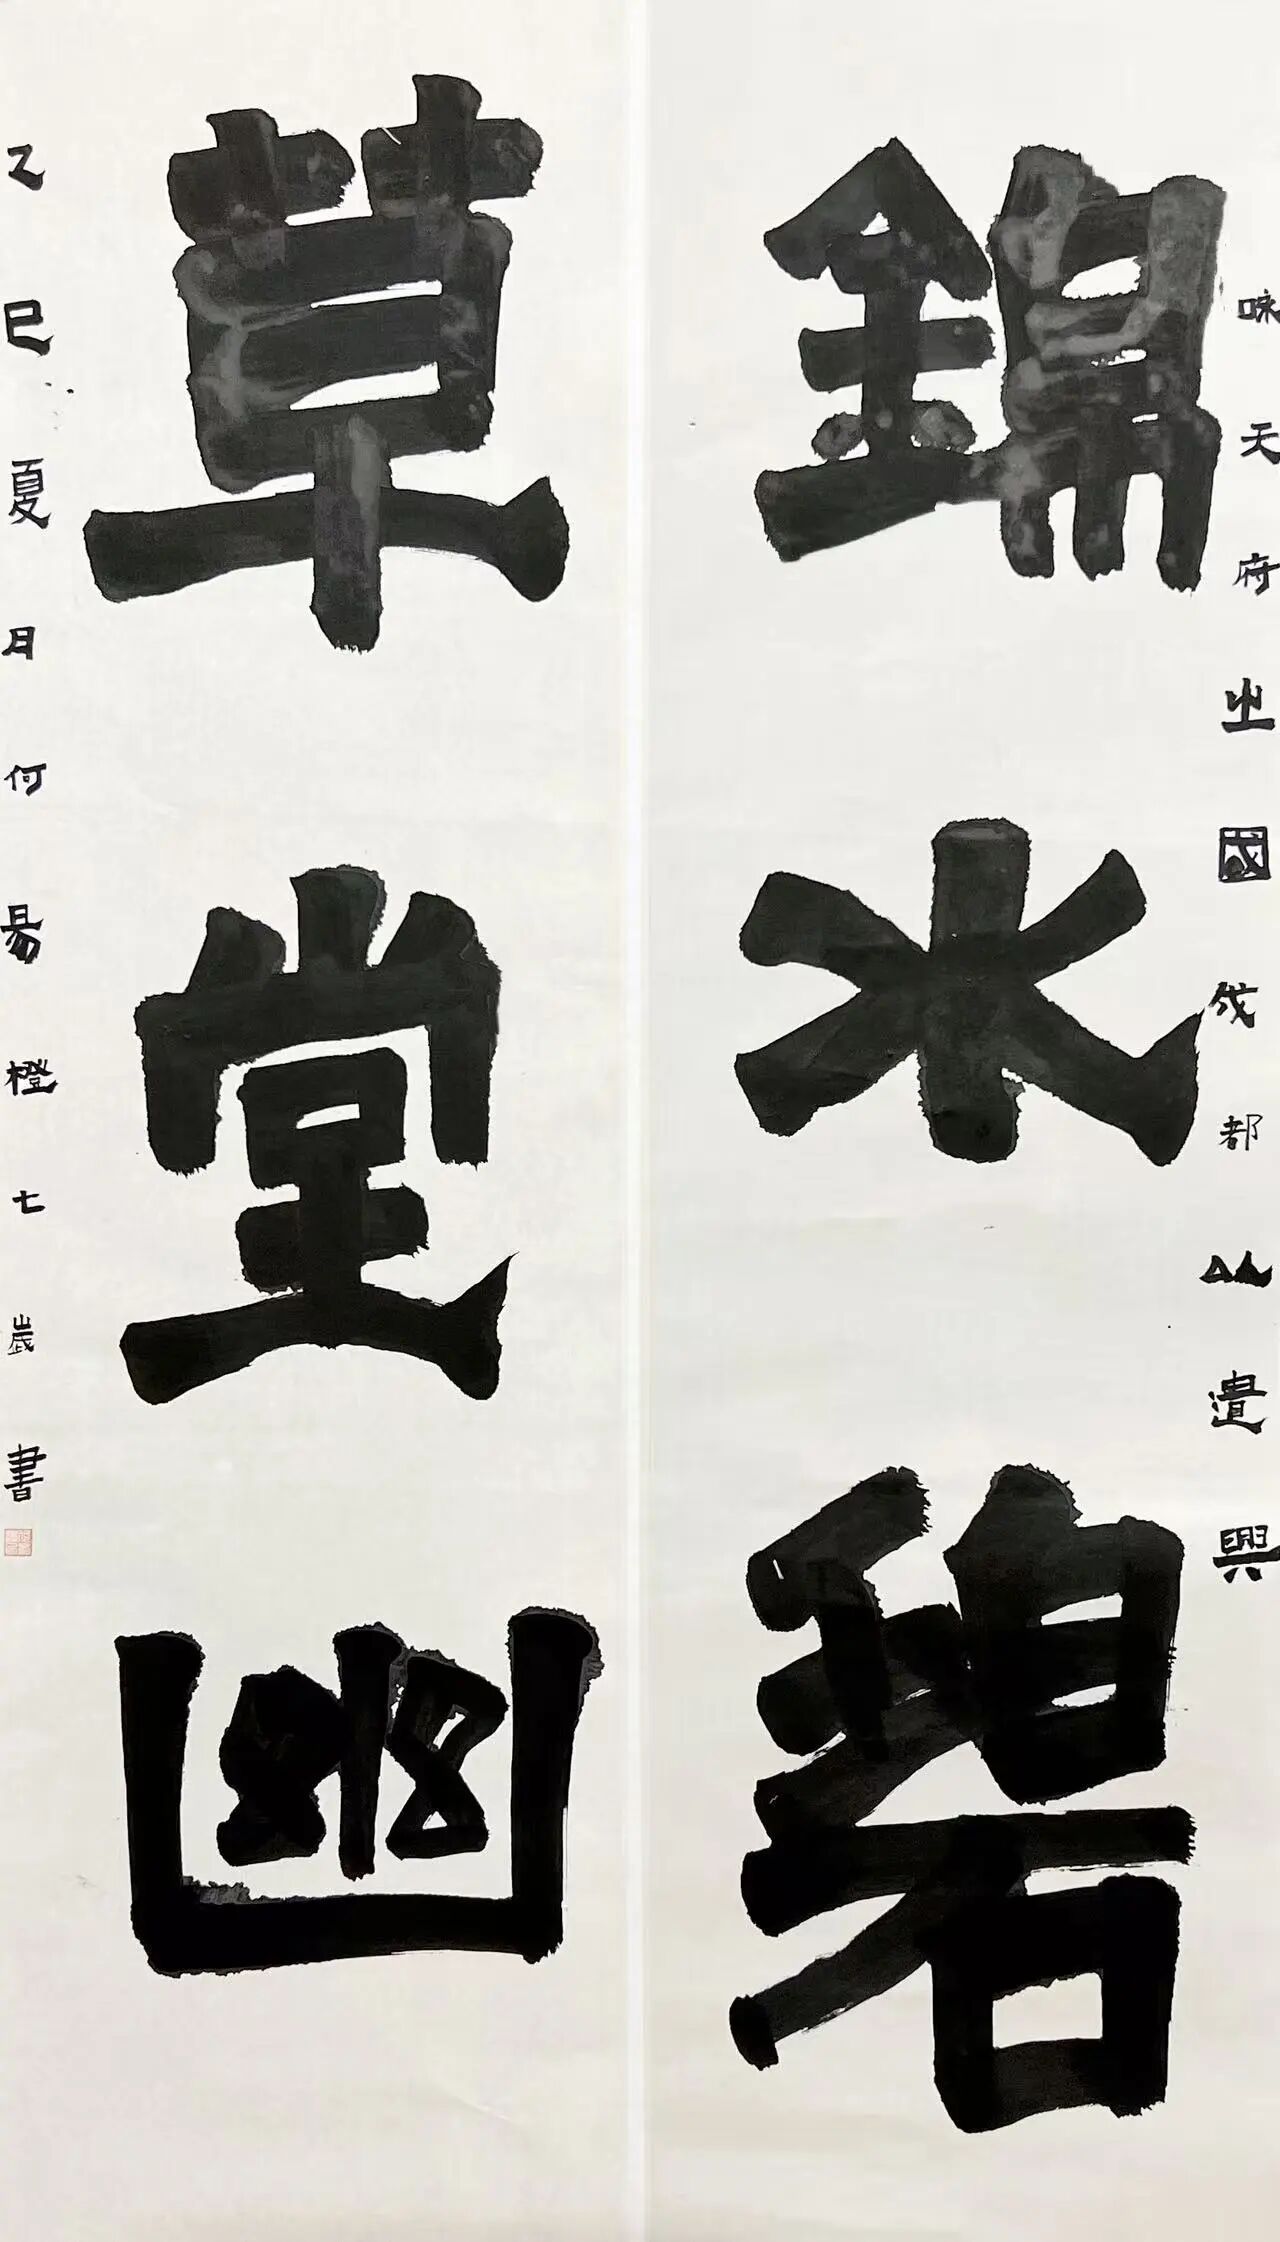 咏天府之國成都以遣興
錦水碧
草堂幽
乙巳夏月何易橙七歲書